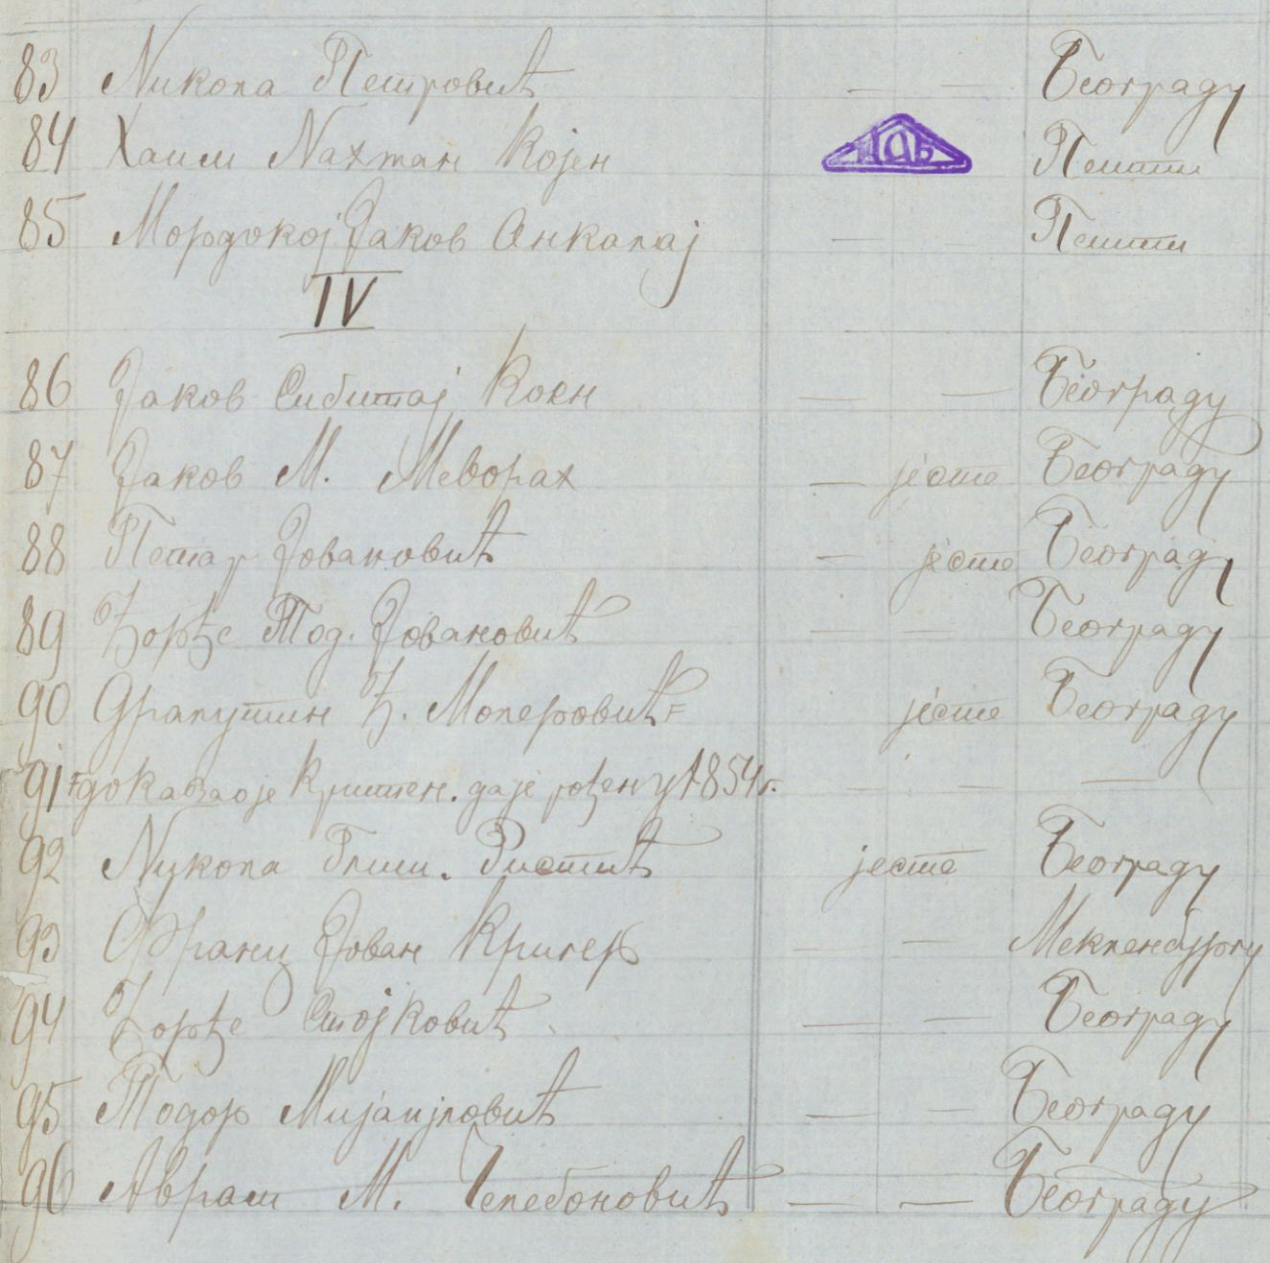 83 Никола Петровић — — Београду
84 Хаим Nахман Којен ИАБ Пешти
85 Мордокој Јаков Анкалај — Пешти
IV
86 Јаков Сибитај Коен — — Београду
87 Јаков М. Меворах — јесте Београду
88 Петар Јовановић — јесте Београду
89 Ђорђе Тод. Јовановић — — Београду
90 Драгутин Ђ. Молеровић јесте Београду
91 доказао је Крштен. да је рођен у 1854 г. — — —
92 Nикола Глиш. Ристић јесте Београду
93 Франц Јован Кригер — — Мекленбургу
94 Ђорђе Стојковић — — Београду
95 Тодор Мијаијловић — — Београду
96 Аврам М. Челебоновић — — Београду